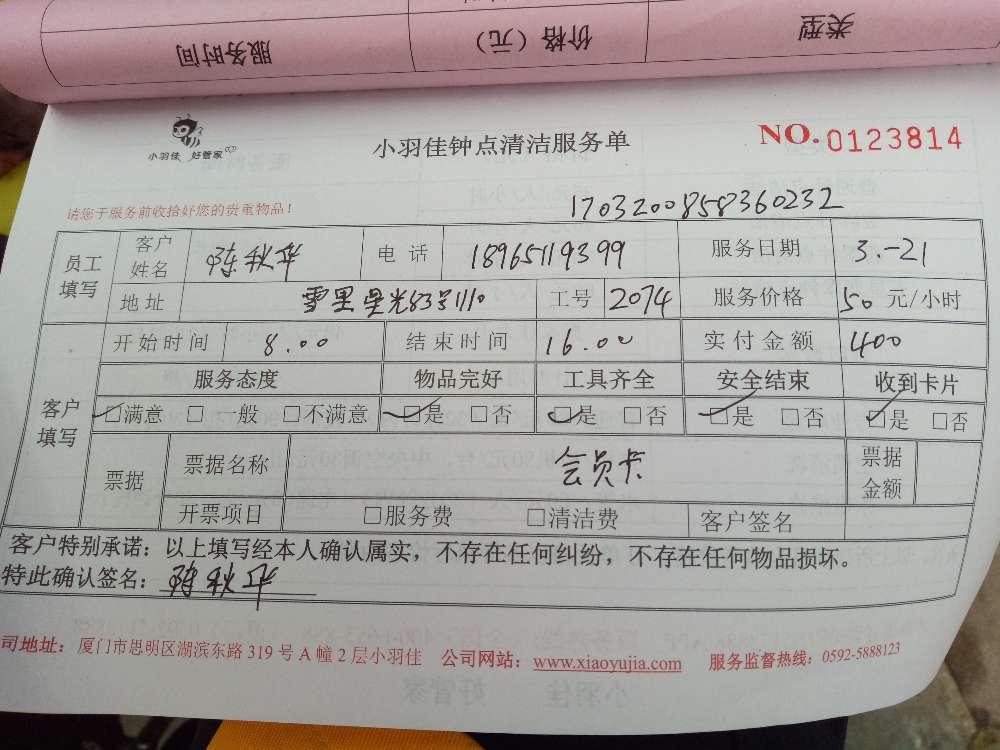 类型 价格（元） 服务时间
小羽佳 好管家
小羽佳钟点清洁服务单
NO. 0123814
请您于服务前收拾好您的贵重物品！
1703200858360232
员工填写 客户姓名 陈秋华 电话 18965119399 服务日期 3.-21
地址 雪里星光83号1110 工号 2074 服务价格 50 元/小时
客户填写 开始时间 8.00 结束时间 16.00 实付金额 400
服务态度 物品完好 工具齐全 安全结束 收到卡片
☑满意 □一般 □不满意 ☑是 □否 ☑是 □否 ☑是 □否 ☑是 □否
票据 票据名称 会员卡 票据金额
开票项目 □服务费 □清洁费 客户签名
客户特别承诺：以上填写经本人确认属实，不存在任何纠纷，不存在任何物品损坏。
特此确认签名：陈秋华
司地址：厦门市思明区湖滨东路 319 号 A 幢 2 层小羽佳 公司网站：www.xiaoyujia.com 服务监督热线：0592-5888123